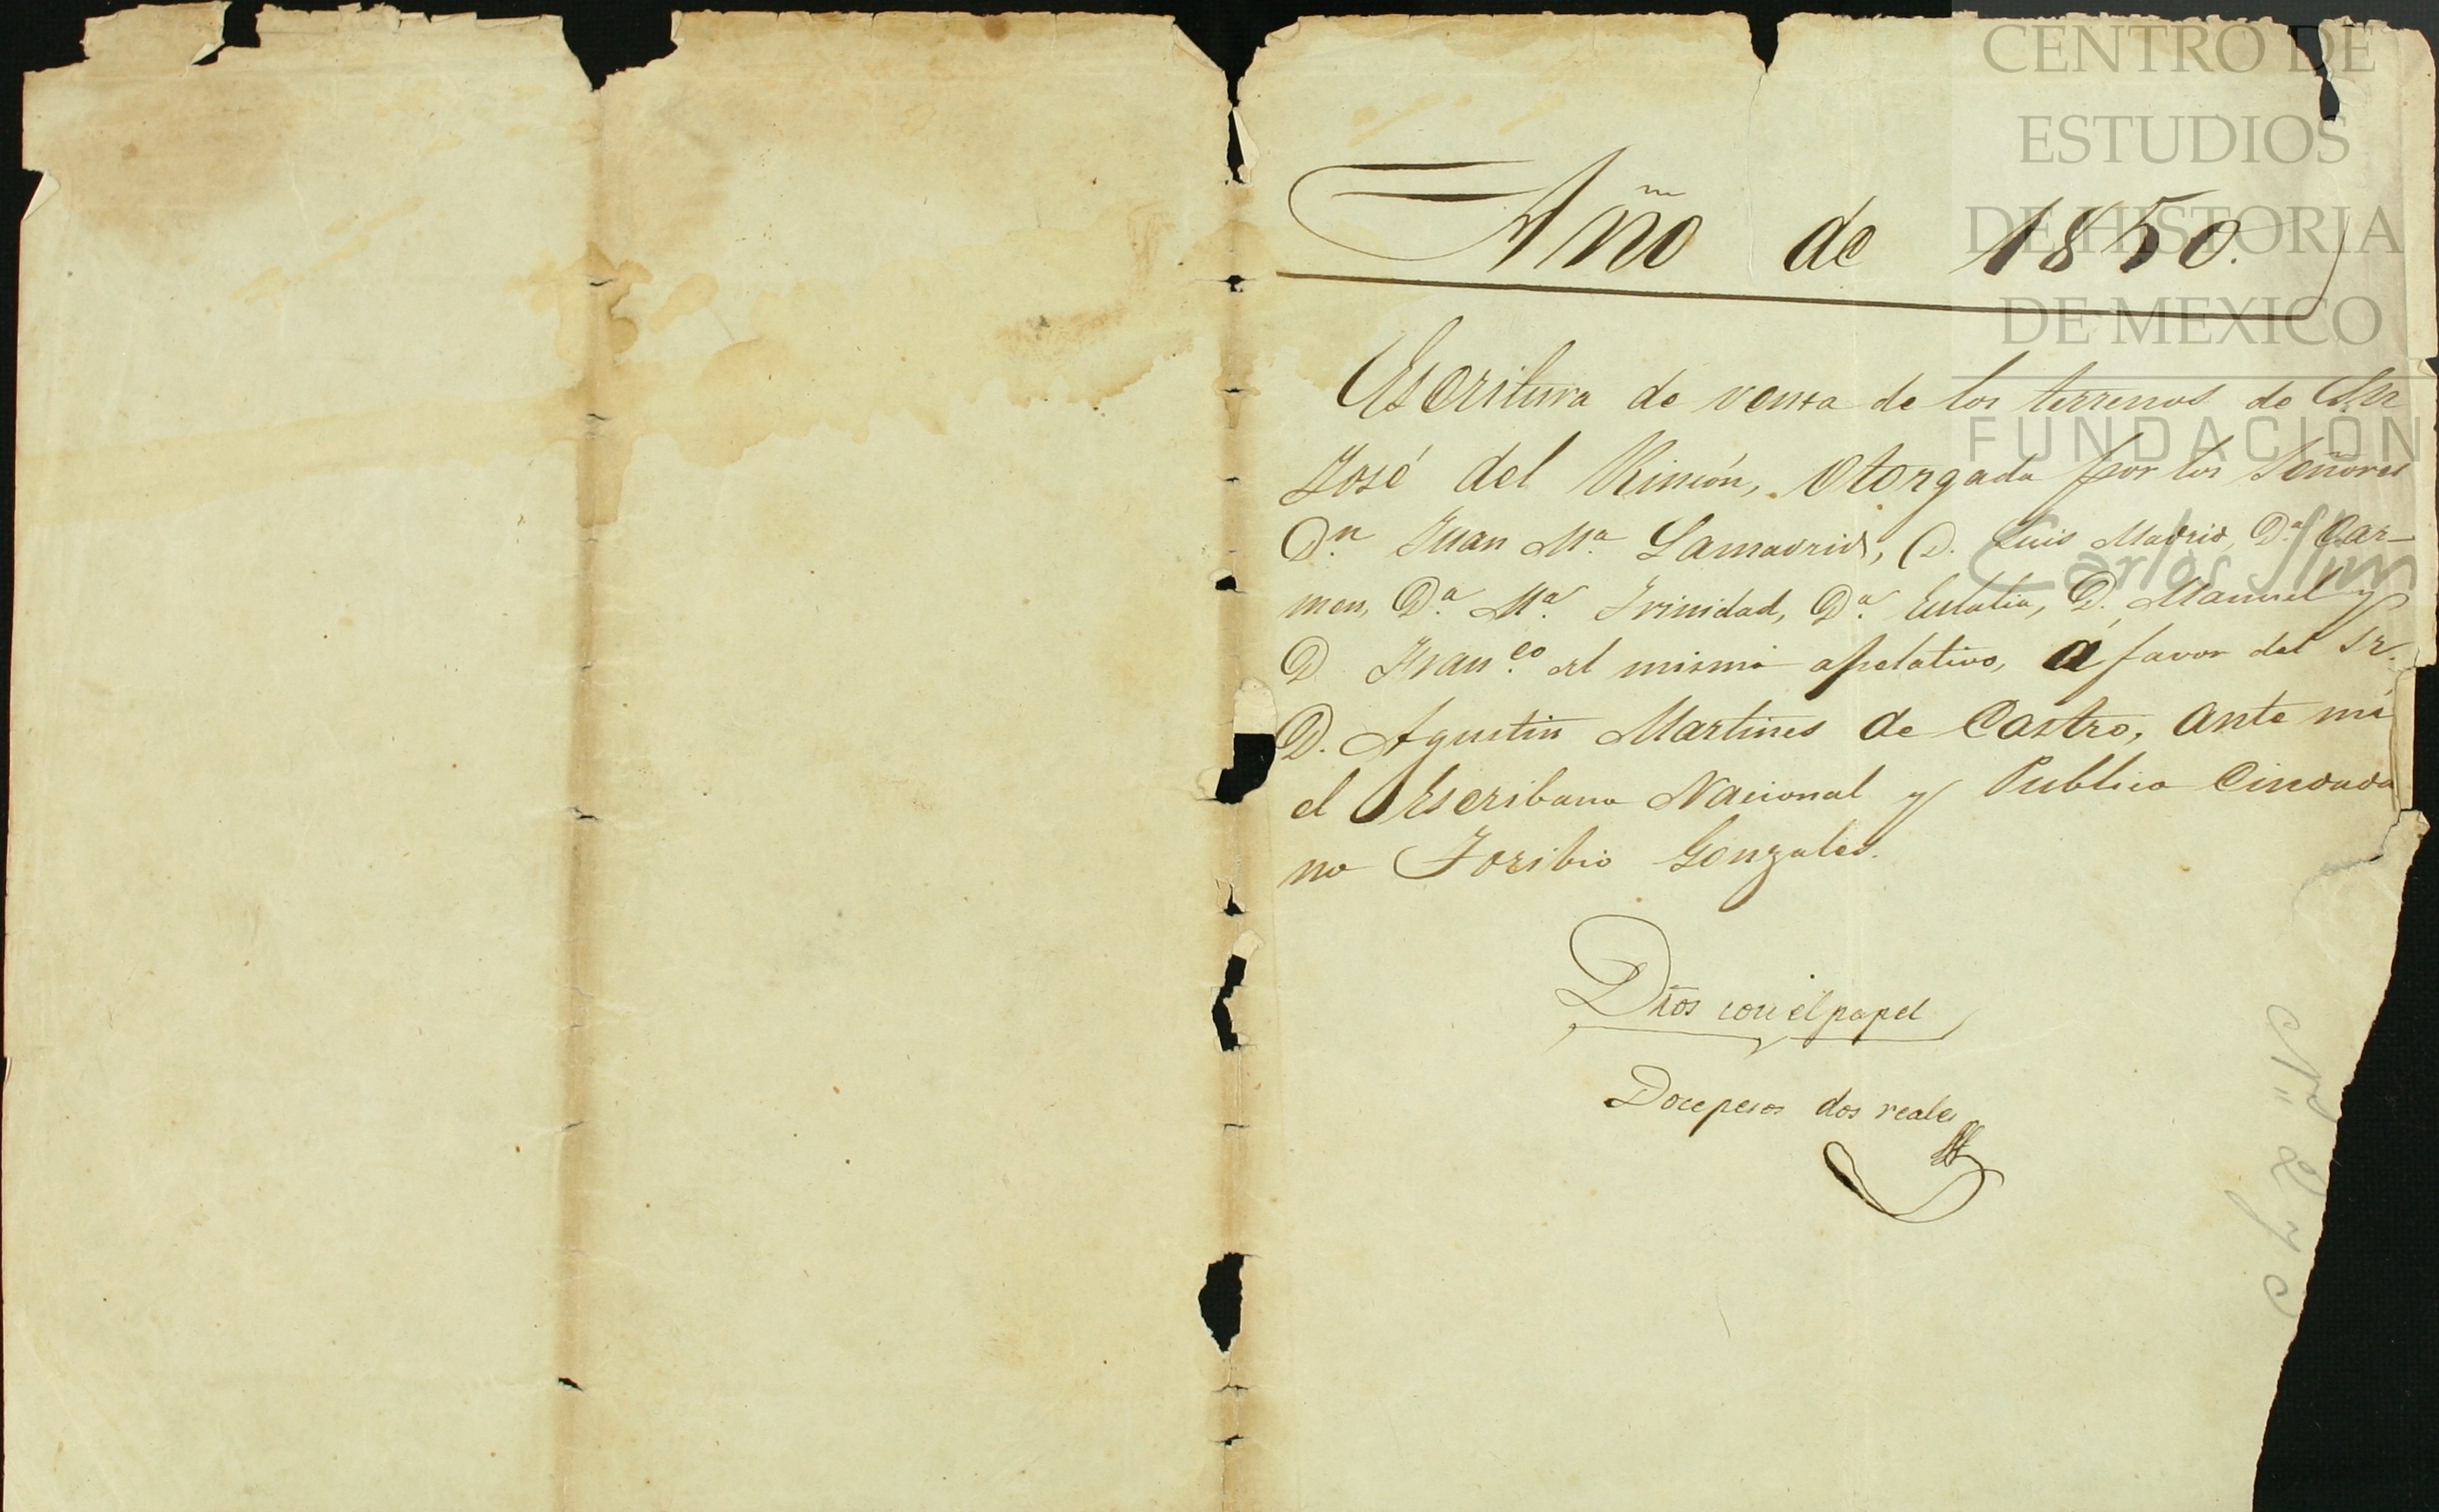 Año de 1850.
Escritura de venta de los terrenos de Sn
José del Rincón, Otorgada por los Señores
Dn. Juan Ma. Lamadrid, D. Luis Madrid, Da. Car-
men, Da. Ma. Trinidad, Da. Eulalia, D. Manuel y
D Franco. del mismo apelativo, á favor del Sr.
D. Agustin Martines de Castro, ante mi
el Escribano Nacional y Publico Ciudada
no Toribio Gonzales.
Dros con el papel
Doce pesos dos reales
CENTRO DE
ESTUDIOS
DE HISTORIA
DE MEXICO
FUNDACIÓN
Carlos Slim